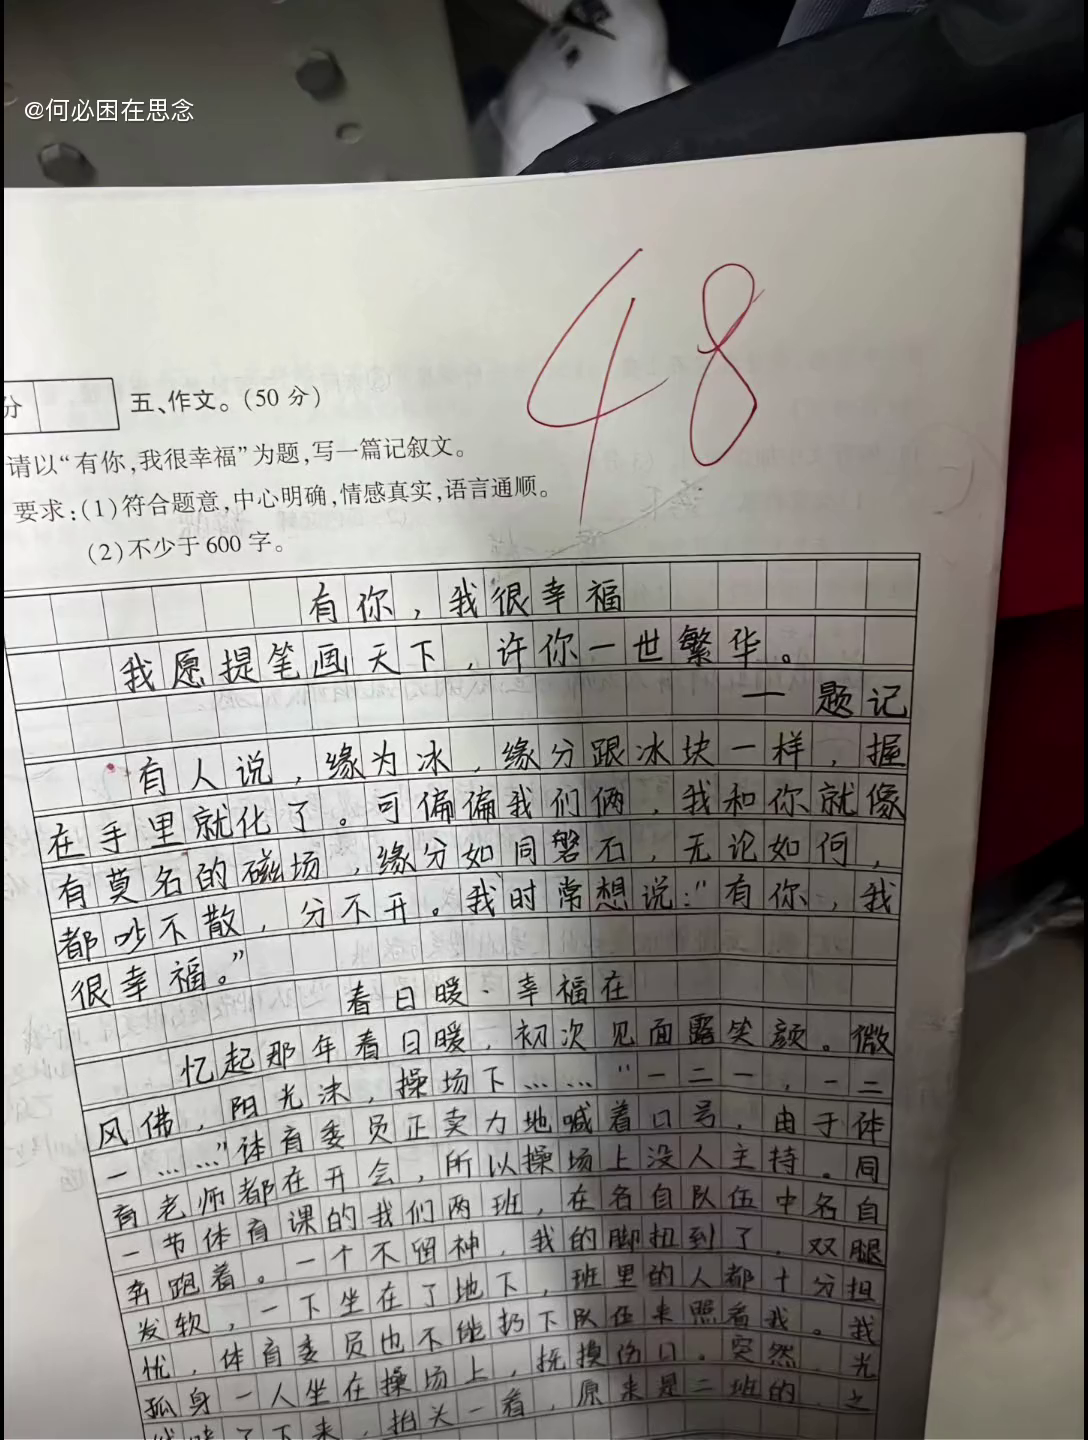 @何必困在思念
48
分
五、作文。(50分)
请以“有你,我很幸福”为题,写一篇记叙文。
要求:(1)符合题意,中心明确,情感真实,语言通顺。
(2)不少于600字。
有你，我很幸福
我愿提笔画天下，许你一世繁华。
一题记
有人说，缘为冰，缘分跟冰块一样，握
在手里就化了。可偏偏我们俩，我和你就像
有莫名的磁场，缘分如同磐石，无论如何，
都吵不散，分不开。我时常想说：“有你，我
很幸福。”
春日暖·幸福在
忆起那年春日暖，初次见面露笑颜。微
风佛，阳光沫，操场下……“一二一，一二
一……”体育委员正卖力地喊着口号，由于体
育老师都在开会，所以操场上没人主持。同
一节体育课的我们两班，在各自队伍中各自
奔跑着。一个不留神，我的脚扭到了，双腿
发软，一下坐在了地下，班里的人都十分担
忧，体育委员也不能扔下队伍来照看我。我
孤身一人坐在操场上，抚摸伤口。突然，光
了下来，抬头一看，原来是二班的，之